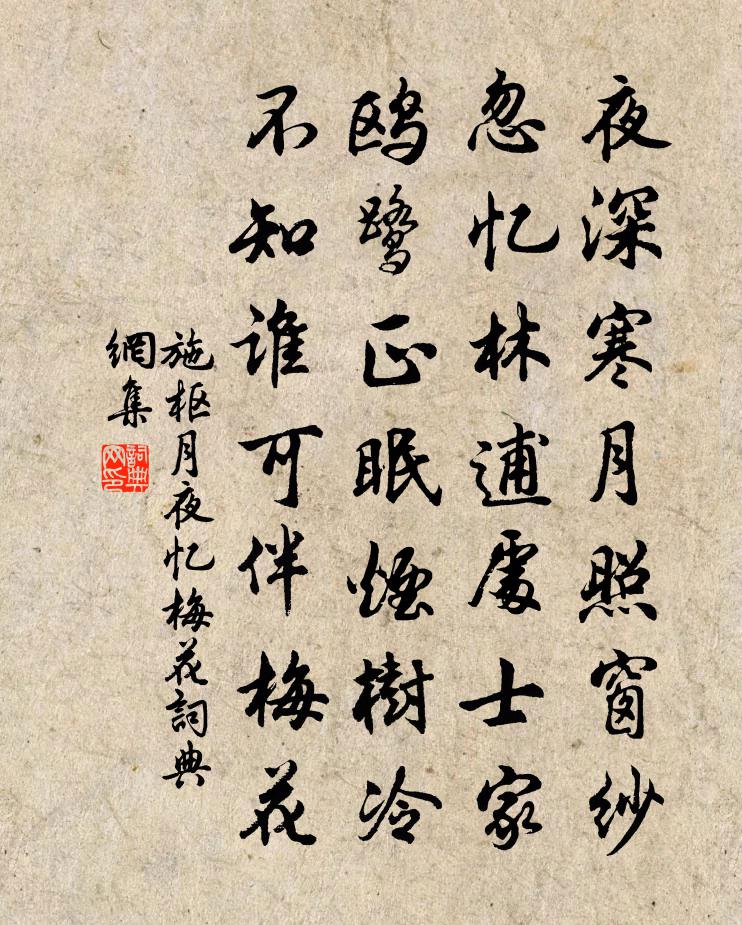 夜深寒月照窗紗
忽忆林逋處士家
鸥鹭正眠煙樹冷
不知谁可伴梅花
施枢月夜忆梅花詞典
網集
詞典
网印